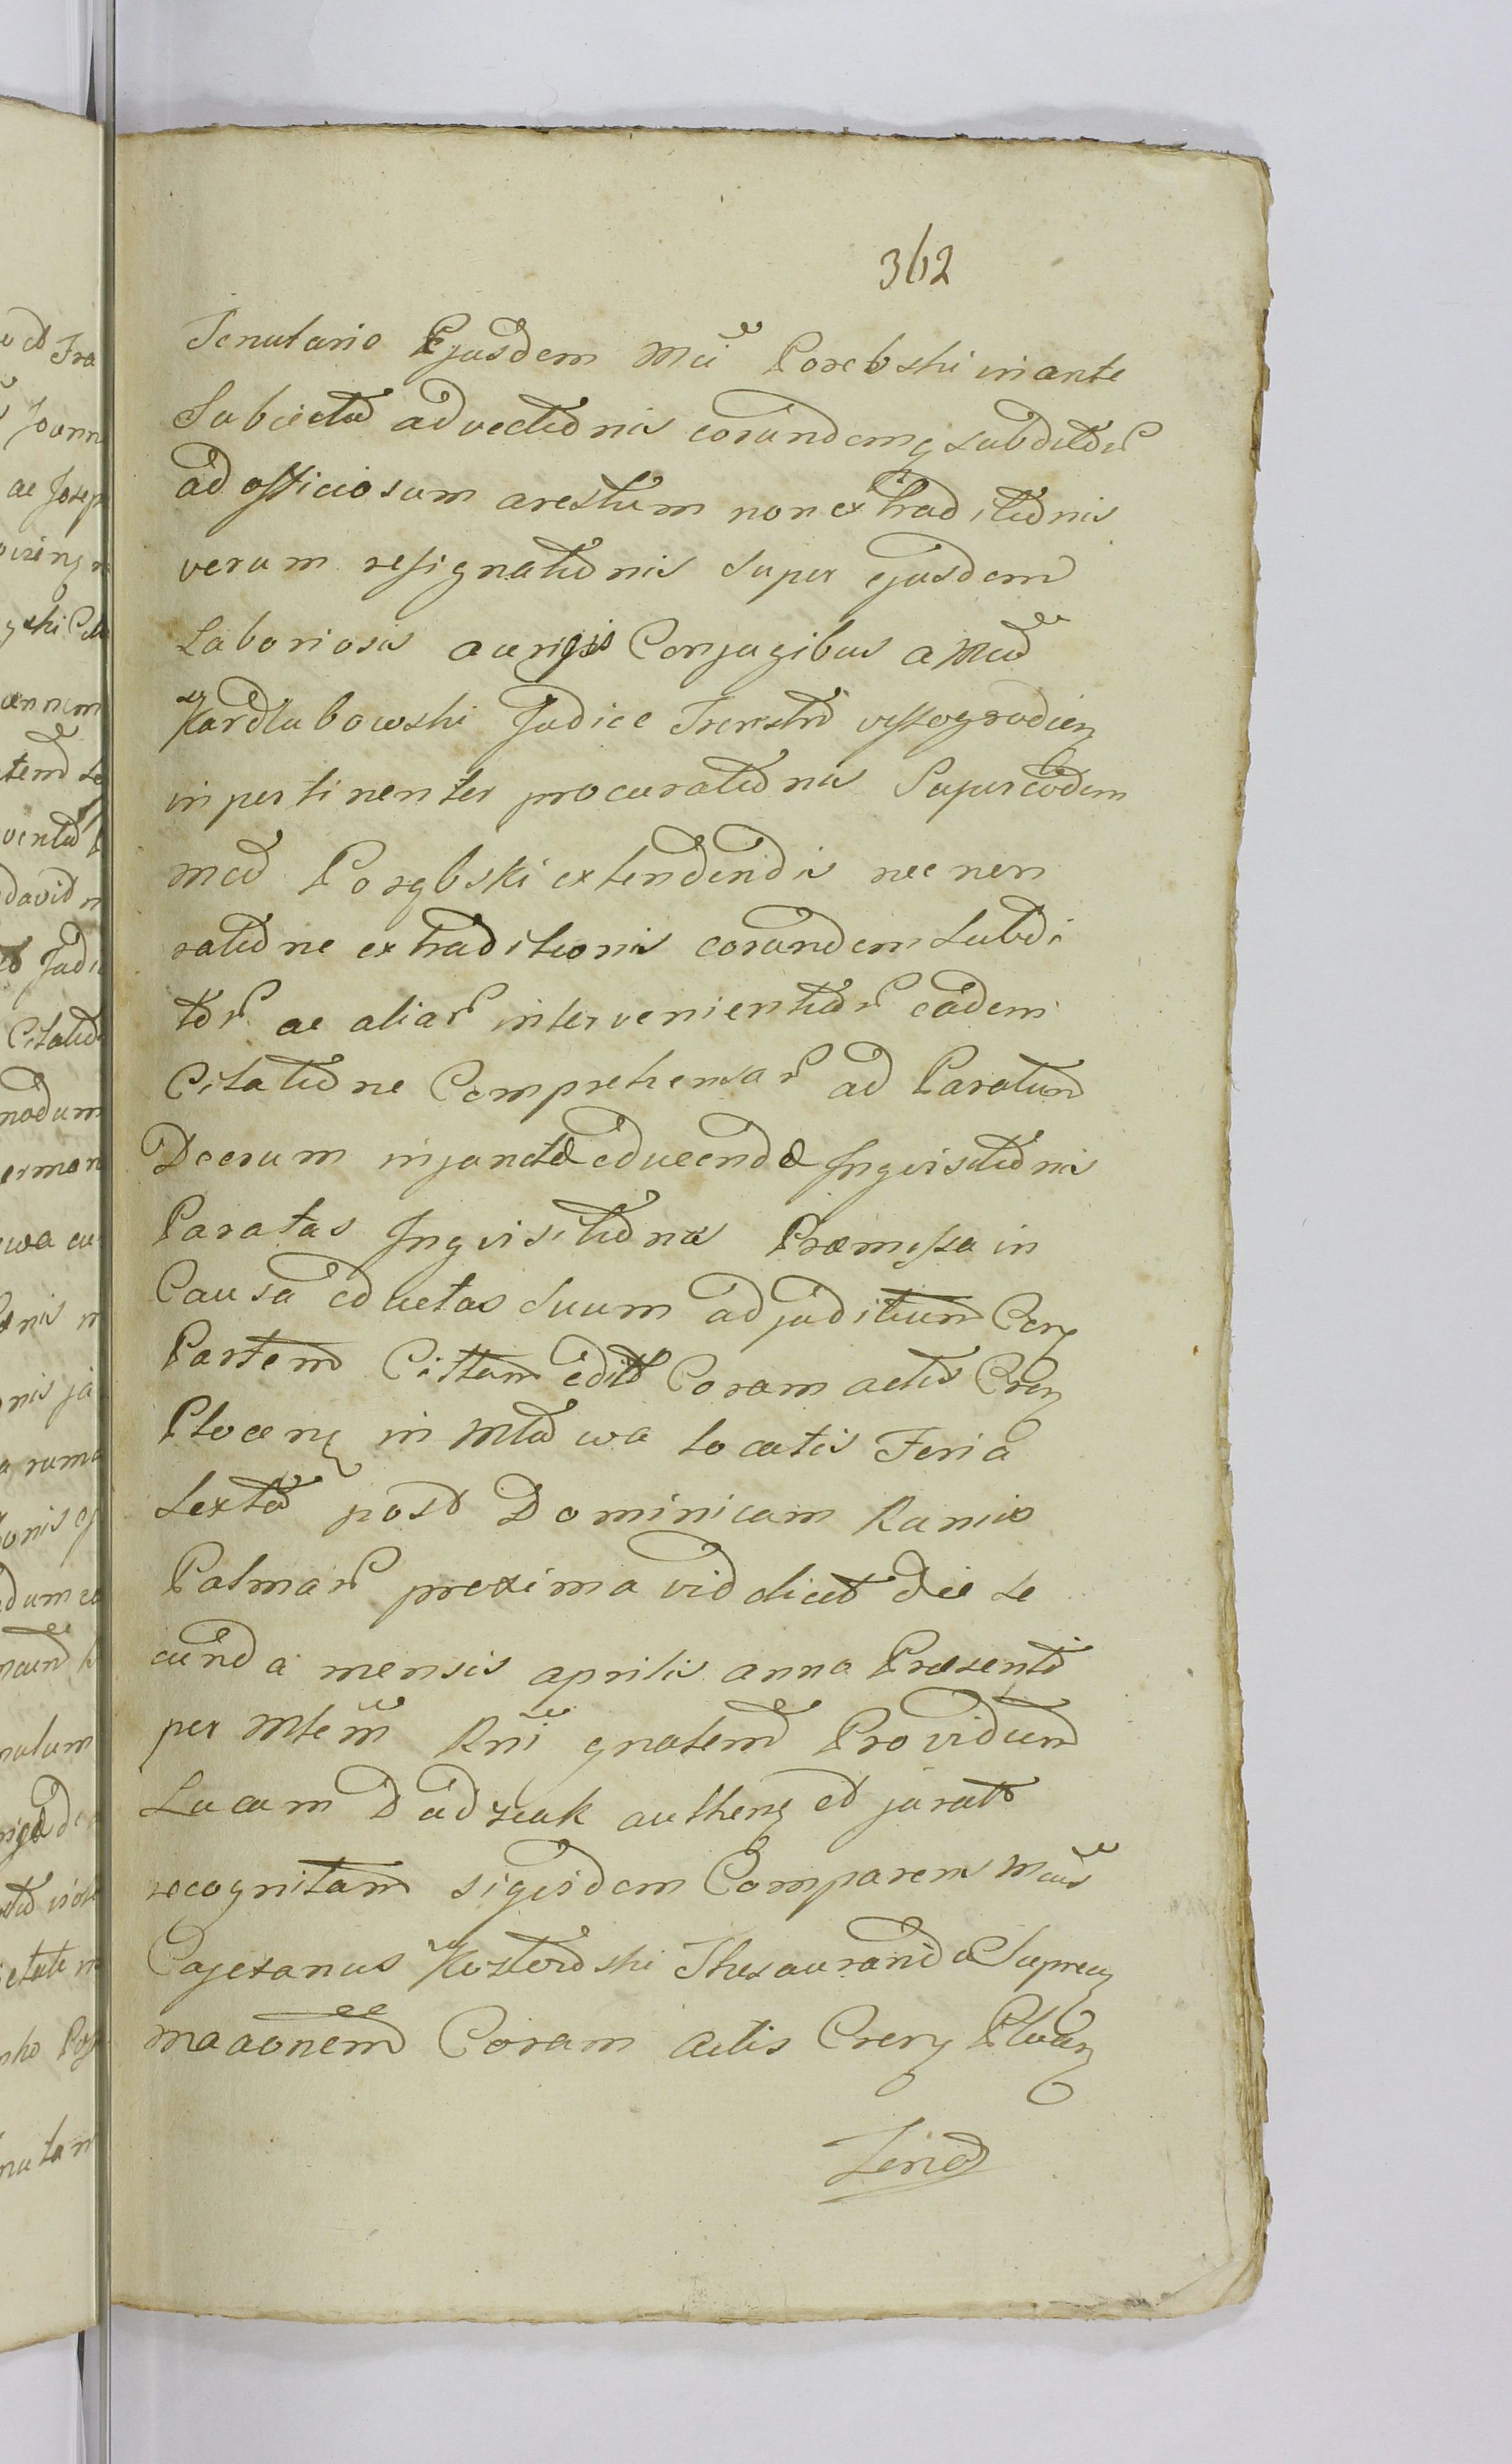 362
Tenutario Ejusdem Mci Porebski in ante
Subiecta advectionis eorundemq subditor
ad officiosum arestum non extraditionis
verum resignationis super ejusdem
Laboriosis aurigis Conjugibus a Mco
Kardlubowski Judice Trrestri vyssogrodien
inpertinenter procurationis Super eodem
mco Porębski extendendis nec non
ratione extraditionis eorundem Subdi
tor ac aliar intervenientiar eadem
Citatione Comprehensar ad Paratum
Docrum injunctae educendae Inqvisitionis
Paratas Inqvisitiones Praemissa in
Causa eductas Suum ad juditium
Partem Cittam edit Coram actis Cren
Plocen in Mlawa locatis Feria
Sexta post Dominicam Ramis
Palmar proxima viddicet die se
cunda mensis aprilis anno Praesenti
per Mtem Rni gnatem Providum
Lucam Dudziak authen et jurat
recognitam siqvidem Comparens Mcus
Cajetanus Thesauranda Suprem
maaonem Coram actis Cren Plocen